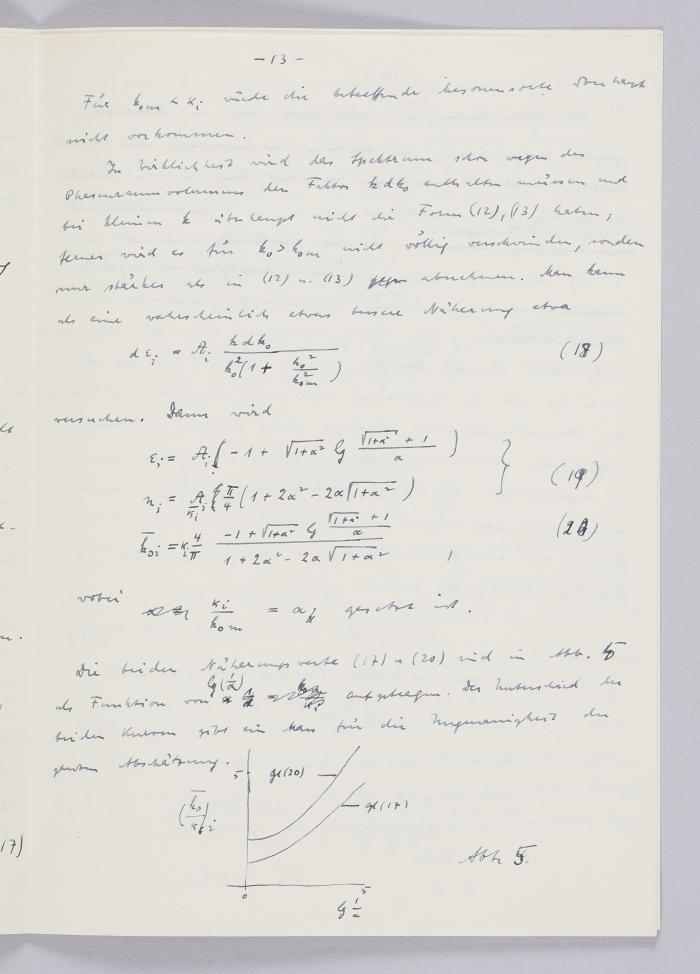 - 13 -
Für k₀ₘ < κᵢ würde die betreffende Mesonensorte überhaupt
nicht vorkommen.
In Wirklichkeit wird das Spektrum schon wegen des
Phasenraumvolumens den Faktor k dk₀ enthalten müssen und
bei kleinen k überhaupt nicht die Form (12), (13) haben;
ferner wird es für k₀ > k₀ₘ nicht völlig verschwinden, sondern
nur stärker als in (12) u. (13) abnehmen. Man kann
als eine wahrscheinlich etwas bessere Näherung etwa
dεᵢ = Aᵢ k dk₀ / k₀² (1 + k₀²/k₀ₘ²) (18)
versuchen. Dann wird
εᵢ = Aᵢ ( -1 + √(1+α²) lg (√(1+α²) + 1)/α )
nᵢ = Aᵢ/κᵢ π/4 (1 + 2α² - 2α√(1+α²)) } (19)
k̄₀ᵢ = κᵢ 4/π (-1 + √(1+α²) lg (√(1+α²) + 1)/α) / (1 + 2α² - 2α√(1+α²)) , (20)
wobei κᵢ/k₀ₘ = α gesetzt ist.
Die beiden Näherungswerte (17) u (20) sind in Abb. 5
als Funktion von lg(1/α) aufgetragen. Der Unterschied der
beiden Kurven gibt ein Mass für die Ungenauigkeit der
ganzen Abschätzung.
5 gl(20)
(k̄₀/κ)ᵢ gl(17)
Abb. 5.
0 5
lg 1/α
17)